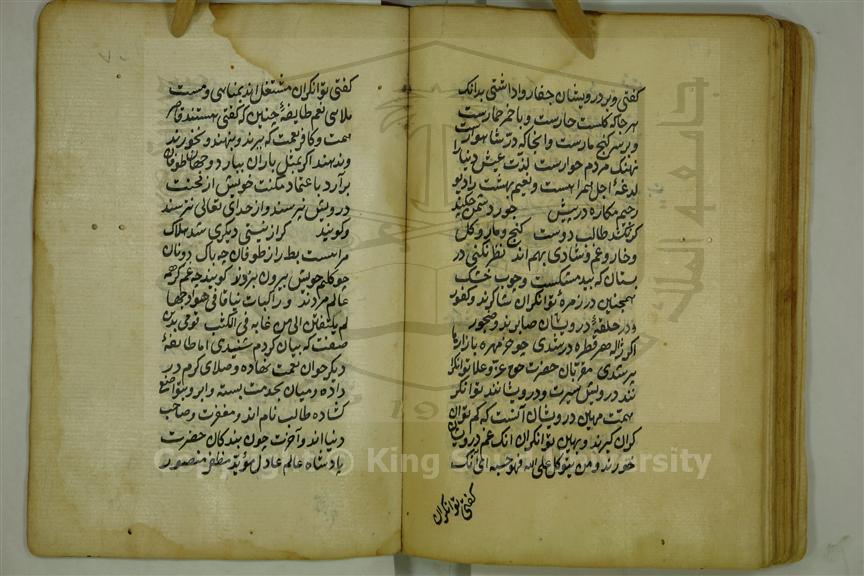 گفتی و بر درویشان جفا روا داشتی بدانک
هر جا که گلست خارست و با خمر خمارست
و بر سر گنج مارست و آنجا که در شاهوارست
نهنگ مردم خوارست لذت عیش دنیا را
لدغهٔ اجل همراهست و نعیم بهشت را دیو
رجیم مکاره در پیش جور دشمن چکند
گر نکشد طالب دوست گنج و مار و گل
و خار و غم و شادی بهم اند نظر نکنی در
بستان که بید مشکست و چوب خشک
همچنین در زمرهٔ توانگران شاکرند و کفور
و در حلقهٔ درویشان صابرند و ضجور
اگر ژاله هر قطره در شدی چو خر مهره بازار ازو
پر شدی مقربان حضرت حق عز و علا توانگرا
نند درویش سیرت و درویشانند توانگر
همت مهین درویشان آنست که کم توان
گران گیرند و بهین توانگران انک غم درویشان
خورند و من یتوکل علی الله فهو حسبه ای آنک
گفتی توانگران
گفتی توانگران مشتغل اند بمناهی و مست
ملاهی نعم طایفهٔ چنین که گفتی هستند قاصر
همت و کافر نعمت که ببرند و بنهند و نخورند
و ندهند اگر بمثل باران نبارد و جهان طوفان
برآرد باعتماد مکنت خویش از محنت
درویش نپرسند و از خدای تعالی نترسند
و گویند گر از نیستی دیگری شد هلاک
مرا هست بط را ز طوفان چه باک دونان
چو گلیم خویش بیرون بردند گویند چه غم گر همه
عالم مردند و راکبات نیاقا فی هوادجها
لم یلتفتن الی من غاب فی الکثب قومی بدین
صفت که بیان کردم شنیدی اما طایفهٔ
دیگر خوان نعمت نهاده و صلای کرم در
داده و میان بخدمت بسته و ابرو بتواضع
گشاده طالب نام اند و مغفرت و صاحب
دنیا اند و آخرت چون بندکان حضرت
پادشاه عالم عادل مؤید مظفر منصور
Copyright © King Saud University